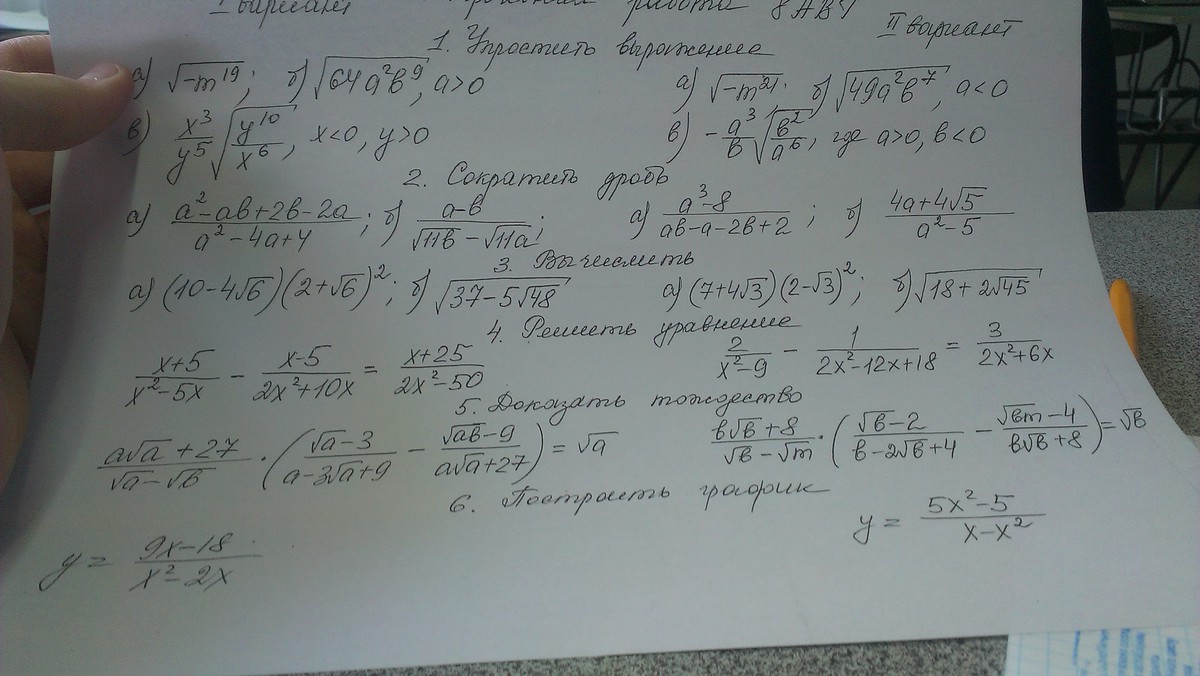 I вариант работа 8АВГ II вариант
1. Упростить выражение
а) √(-m¹⁹); б) √(64a²b⁹), a>0 а) √(-m²¹); б) √(49a²b⁷), a<0
в) x³/y⁵ √(y¹⁰/x⁶), x<0, y>0 в) -a³/b √(b²/a⁶), где a>0, b<0
2. Сократить дробь
а) (a²-ab+2b-2a)/(a²-4a+4); б) (a-b)/(√11b-√11a); а) (a³-8)/(ab-a-2b+2); б) (4a+4√5)/(a²-5)
3. Вычислить
а) (10-4√6)(2+√6)²; б) √(37-5√48) а) (7+4√3)(2-√3)²; б) √(18+2√45)
4. Решить уравнение
(x+5)/(x²-5x) - (x-5)/(2x²+10x) = (x+25)/(2x²-50) 2/(x²-9) - 1/(2x²-12x+18) = 3/(2x²+6x)
5. Доказать тождество
(a√a+27)/(√a-√b) · ((√a-3)/(a-3√a+9) - (√ab-9)/(a√a+27)) = √a (b√b+8)/(√b-√m) · ((√b-2)/(b-2√b+4) - (√bm-4)/(b√b+8)) = √b
6. Построить график
y = (9x-18)/(x²-2x) y = (5x²-5)/(x-x²)